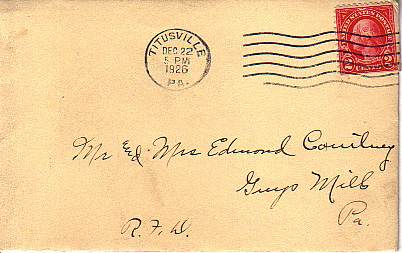 TITUSVILLE
DEC 22
5 PM
1926
PA.
UNITED STATES POSTAGE
2 CENTS 2
Mr and Mrs Edmond Courtney
Guys Mills
Pa.
R.F.D.